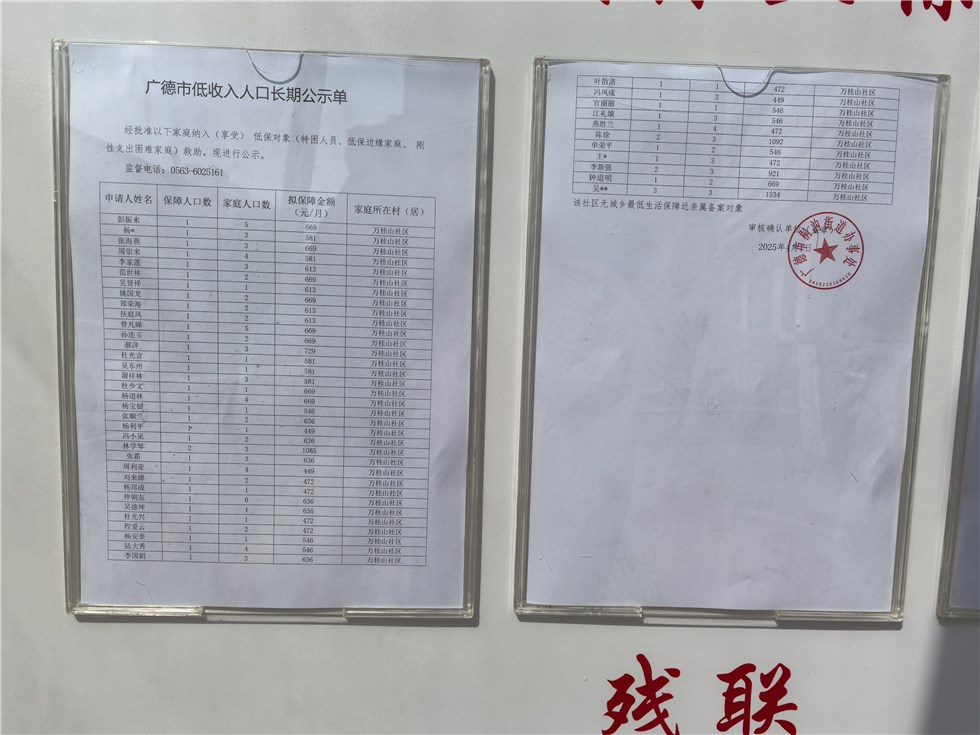 广德市低收入人口长期公示单
经批准以下家庭纳入（享受） 低保对象（特困人员、低保边缘家庭、 刚
性支出困难家庭）救助，现进行公示。
监督电话：0563-6025161
申请人姓名 保障人口数 家庭人口数 拟保障金额（元/月） 家庭所在村（居）
彭振来 1 5 669 万桂山社区
杨* 1 3 581 万桂山社区
张海燕 1 4 581 万桂山社区
周崇来 1 3 613 万桂山社区
李家莲 1 2 669 万桂山社区
范世林 1 1 613 万桂山社区
吴贤祥 1 2 669 万桂山社区
姚国龙 1 2 613 万桂山社区
郑荣海 1 2 613 万桂山社区
伏庭凤 1 5 669 万桂山社区
曹凡娣 1 2 669 万桂山社区
孙连玉 1 3 729 万桂山社区
郝萍 1 1 581 万桂山社区
杜光音 1 1 581 万桂山社区
吴东州 1 3 581 万桂山社区
谢祥林 1 1 669 万桂山社区
杜少文 1 4 669 万桂山社区
杨道林 1 1 546 万桂山社区
杨宝银 1 2 636 万桂山社区
张顺兰 1 1 449 万桂山社区
杨利平 1 2 636 万桂山社区
冯小呆 1 3 1085 万桂山社区
林学琴 2 3 636 万桂山社区
张霜 1 4 449 万桂山社区
周利亚 1 2 472 万桂山社区
刘来娣 1 1 472 万桂山社区
杨邦成 1 6 636 万桂山社区
仲朝友 1 1 636 万桂山社区
吴德坤 1 1 472 万桂山社区
杜光兴 1 2 472 万桂山社区
程爱云 1 1 546 万桂山社区
杨安奎 1 4 546 万桂山社区
陆大秀 1 3 636 万桂山社区
李国娟
叶散清 1 1 472 万桂山社区
冯风成 1 3 449 万桂山社区
官丽丽 1 1 546 万桂山社区
江礼娥 1 3 546 万桂山社区
燕胜兰 1 4 472 万桂山社区
陈徐 2 3 1092 万桂山社区
单荣平 1 2 546 万桂山社区
王* 1 3 472 万桂山社区
李新强 2 3 921 万桂山社区
钟道明 1 2 669 万桂山社区
吴** 3 3 1534 万桂山社区
该社区无城乡最低生活保障近亲属备案对象
审核确认单位
2025年
广德市桐汭街道办事处
残联